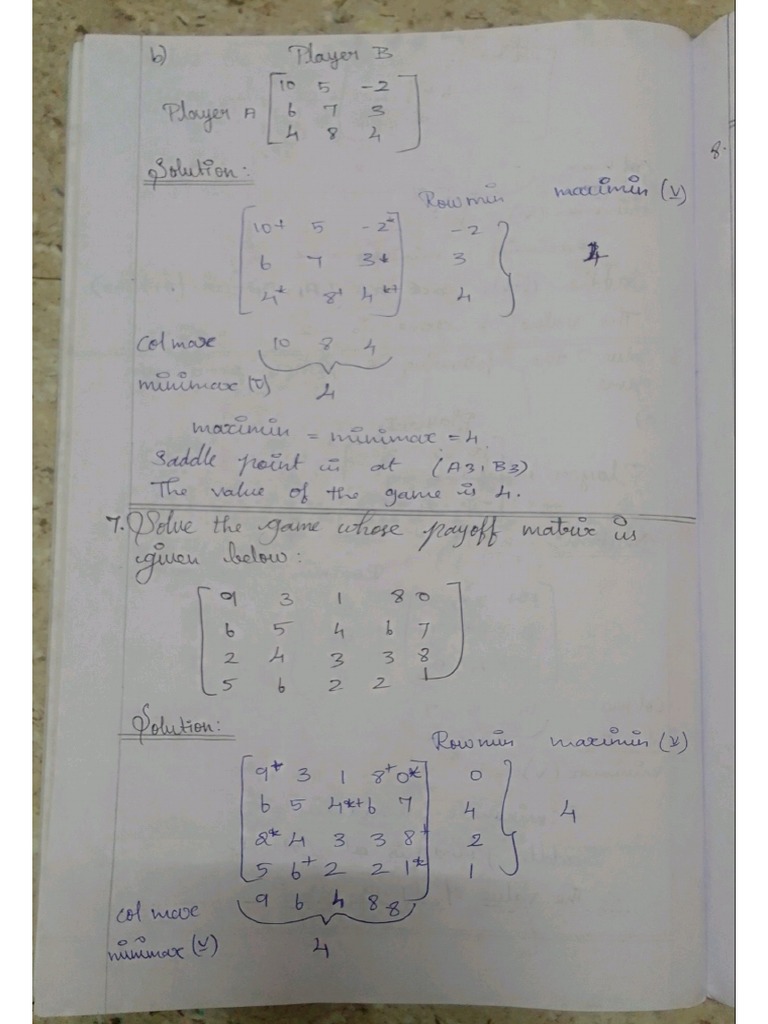 b) Player B
10 5 -2
Player A 6 7 3
4 8 4
Solution:
Row min maximin (v)
10+ 5 -2* -2
6 7 3* 3 4
4* 8+ 4*+ 4
Col max 10 8 4
minimax (v̄) 4
maximin = minimax = 4
Saddle point is at (A3, B3)
The value of the game is 4.
7. Solve the game whose payoff matrix is
given below:
9 3 1 8 0
6 5 4 6 7
2 4 3 3 8
5 6 2 2 1
Solution:
Row min maximin (v)
9+ 3 1 8+ 0* 0
6 5 4*+ 6 7 4 4
2* 4 3 3 8+ 2
5 6+ 2 2 1* 1
col max 9 6 4 8 8
minimax (v) 4
8.